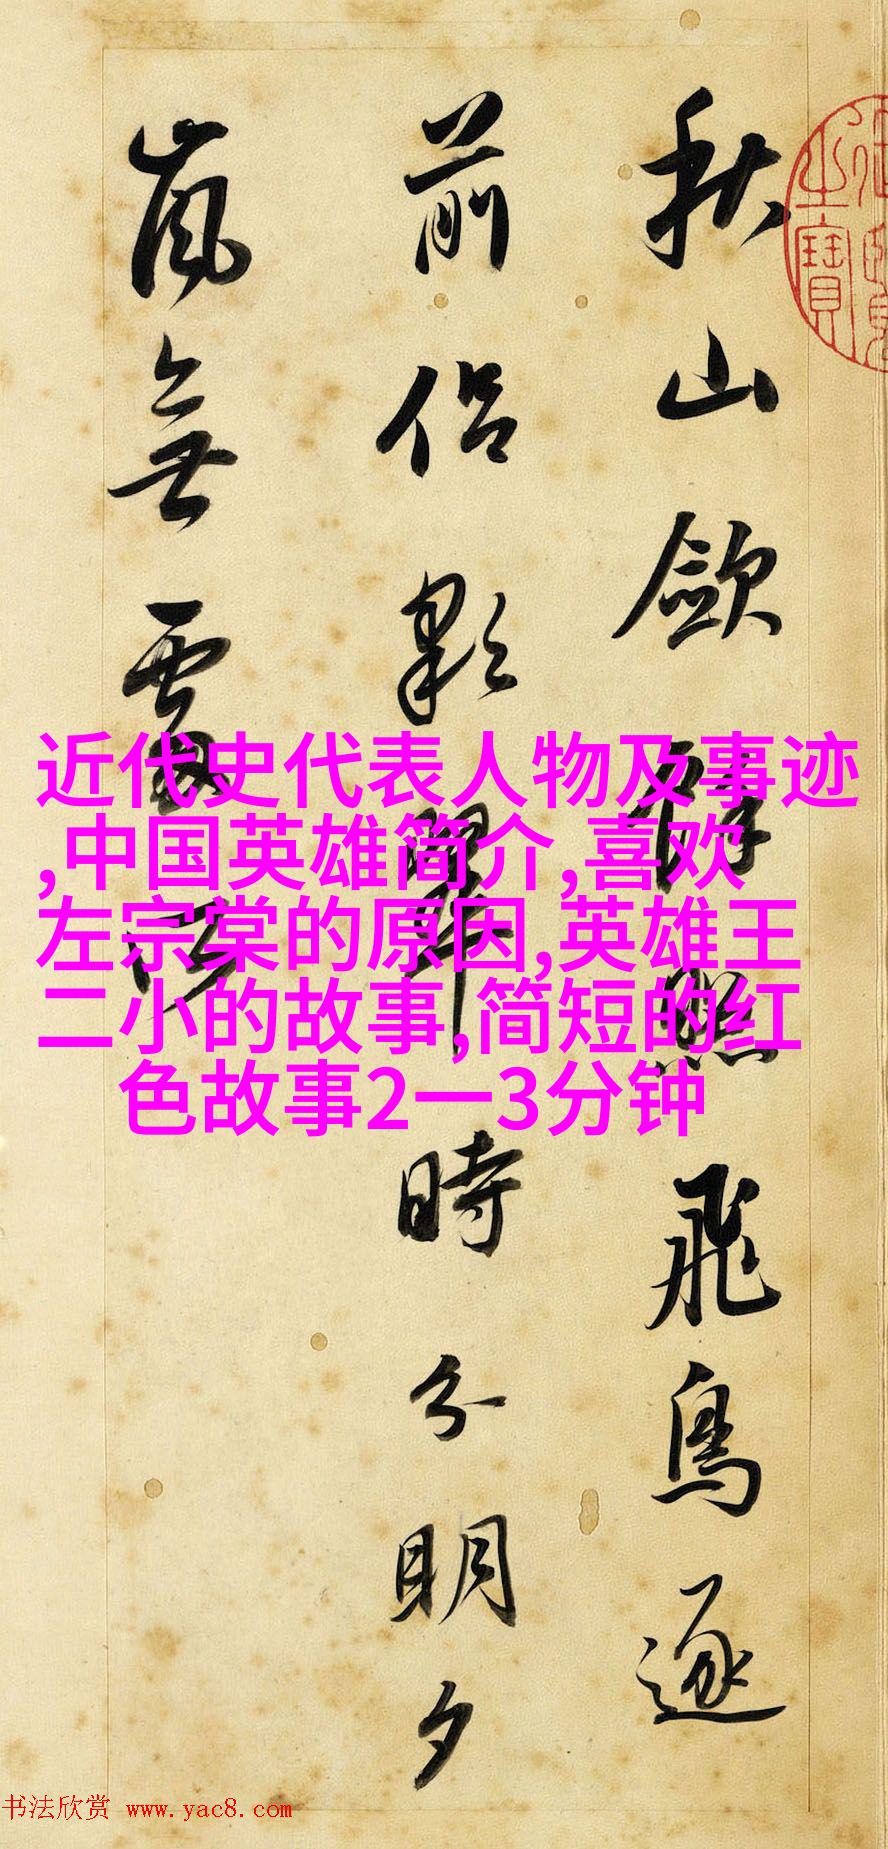 秋山斂餘照飛鳥逐
前侶彩翠時分明夕
嵐無處所
近代史代表人物及事迹
,中国英雄简介,喜欢
左宗棠的原因,英雄王
二小的故事,简短的红
色故事2一3分钟
之寶
书法欣赏 www.yac8.com